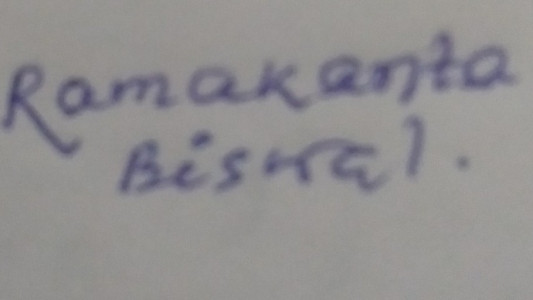 Ramakanta
Biswal.